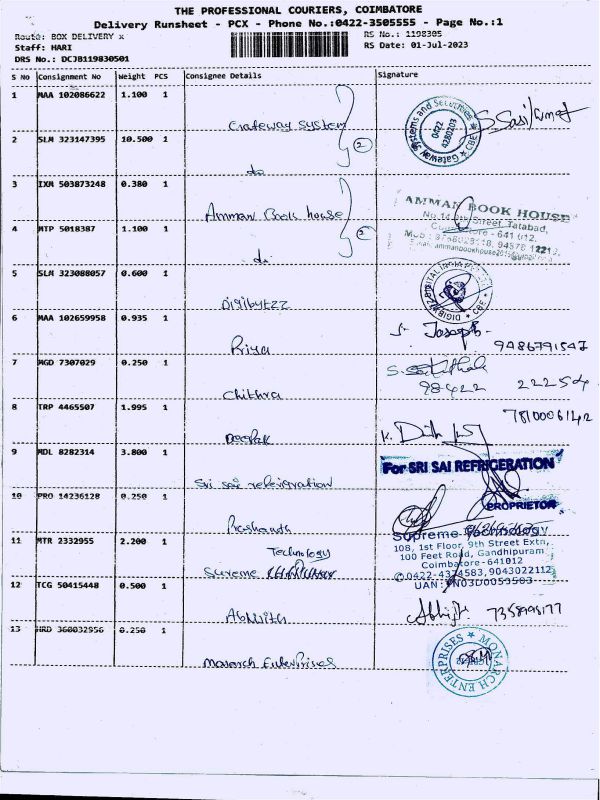 THE PROFESSIONAL COURIERS, COIMBATORE
Delivery Runsheet - PCX - Phone No.:0422-3505555 - Page No.:1
Route: BOX DELIVERY x RS No.: 1198305
Staff: HARI RS Date: 01-Jul-2023
DRS No.: DCJB119830501
S No Consignment No Weight PCS Consignee Details Signature
1 MAA 102086622 1.100 1 Gateway System
2 SLM 323147395 10.500 1 do
2
Gateway Systems and Securities * CBE *
0422
4280203
S. Sasikumar
3 IXM 503873248 0.380 1 Amman Book house
4 MTP 5018387 1.100 1 do
2
AMMAN BOOK HOUSE
Street, Tatabad,
Coimbatore - 641 012.
5 SLM 323088057 0.600 1 Digibytzz
* CBE *
6 MAA 102659958 0.935 1 Priya
J. Joseph
9486791547
7 MGD 7307029 0.250 1 Chithra
98422 22254
8 TRP 4465507 1.995 1 Deepak
7810006142
9 MDL 8282314 3.800 1 Sri sai refrigration
For SRI SAI REFRIGERATION
PROPRIETOR
10 PRO 14236128 0.250 1 Prashanth
11 MTR 2332955 2.200 1 Supreme Technology
Supreme Technology
108, 1st Floor, 9th Street Extn,
100 Feet Road, Gandhipuram
Coimbatore-641012
0422-4374583,9043022112
12 TCG 50415448 0.500 1 Abhijith
Abhijith 7358995177
13 HRD 368032956 0.250 1 Monarch Enterprises
* MONARCH ENTERPRISES *